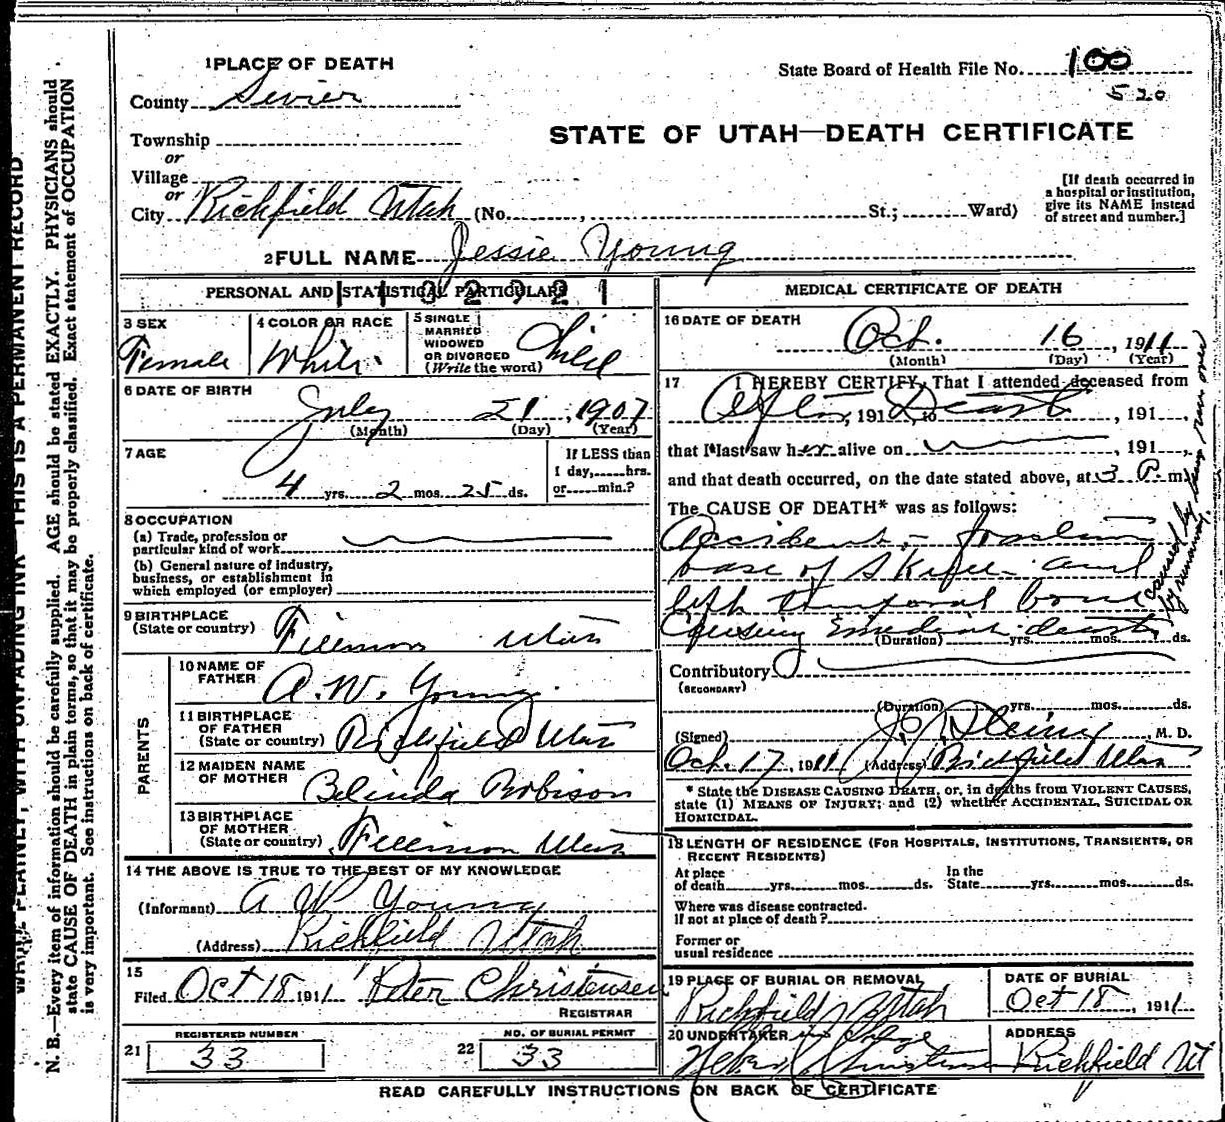 1 PLACE OF DEATH
County Sevier
Township
or
Village
or
City Richfield Utah (No. , St.; Ward)
State Board of Health File No. 100
520
STATE OF UTAH—DEATH CERTIFICATE
[If death occurred in
a hospital or institution,
give its NAME instead
of street and number.]
2 FULL NAME Jessie Young
PERSONAL AND STATISTICAL PARTICULARS
3 SEX
Female
4 COLOR OR RACE
White
5 SINGLE
MARRIED
WIDOWED
OR DIVORCED
(Write the word)
Child
6 DATE OF BIRTH
July 21, 1907
(Month) (Day) (Year)
7 AGE
4 yrs. 2 mos. 25 ds.
If LESS than
1 day, hrs.
or min.?
8 OCCUPATION
(a) Trade, profession or
particular kind of work
(b) General nature of industry,
business, or establishment in
which employed (or employer)
9 BIRTHPLACE
(State or country)
Fillmore Utah
PARENTS
10 NAME OF
FATHER
A. W. Young
11 BIRTHPLACE
OF FATHER
(State or country)
Richfield Utah
12 MAIDEN NAME
OF MOTHER
Belinda Robison
13 BIRTHPLACE
OF MOTHER
(State or country)
Fillmore Utah
14 THE ABOVE IS TRUE TO THE BEST OF MY KNOWLEDGE
(Informant) A W Young
(Address) Richfield Utah
15
Filed Oct 18 1911 Peter Christensen
REGISTRAR
REGISTERED NUMBER
21 33
NO. OF BURIAL PERMIT
22 33
MEDICAL CERTIFICATE OF DEATH
16 DATE OF DEATH
Oct. 16, 1911
(Month) (Day) (Year)
17 I HEREBY CERTIFY, That I attended deceased from
After, 191 Death to , 191 ,
that I last saw her alive on , 191 ,
and that death occurred, on the date stated above, at 3 P. m.
The CAUSE OF DEATH* was as follows:
Accident,- fracture
base of Skull and
left temporal bone
Causing Immediate death
(Duration) yrs. mos. ds.
caused by being run over
by
Contributory
(SECONDARY)
(Duration) yrs. mos. ds.
(Signed) , M. D.
Oct. 17, 1911 (Address) Richfield Utah
* State the DISEASE CAUSING DEATH, or, in deaths from VIOLENT CAUSES,
state (1) MEANS OF INJURY; and (2) whether ACCIDENTAL, SUICIDAL OR
HOMICIDAL.
18 LENGTH OF RESIDENCE (FOR HOSPITALS, INSTITUTIONS, TRANSIENTS, OR
RECENT RESIDENTS)
At place
of death yrs. mos. ds.
In the
State yrs. mos. ds.
Where was disease contracted.
If not at place of death?
Former or
usual residence
19 PLACE OF BURIAL OR REMOVAL
Richfield Utah
DATE OF BURIAL
Oct 18, 1911
20 UNDERTAKER in Charge
Christensen
ADDRESS
Richfield Ut
READ CAREFULLY INSTRUCTIONS ON BACK OF CERTIFICATE
WRITE PLAINLY, WITH UNFADING INK—THIS IS A PERMANENT RECORD
N. B.—Every item of information should be carefully supplied. AGE should be stated EXACTLY. PHYSICIANS should
state CAUSE OF DEATH in plain terms, so that it may be properly classified. Exact statement of OCCUPATION
is very important. See instructions on back of certificate.